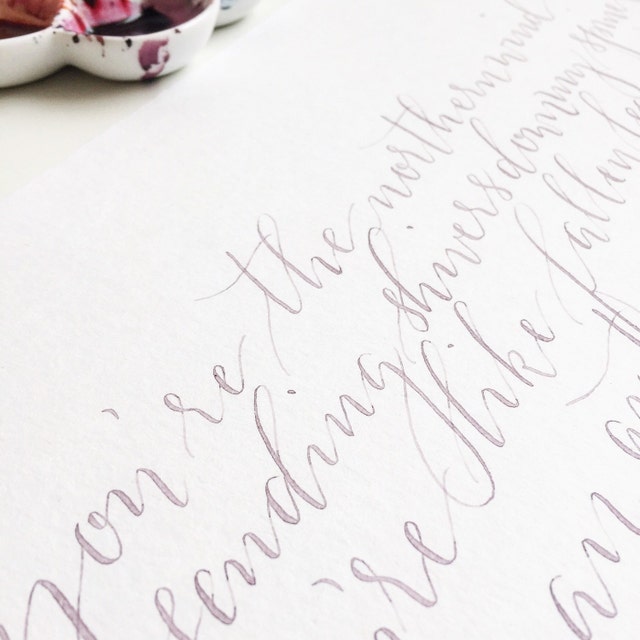 You're the northern wind
sending shivers down my
're like fallen